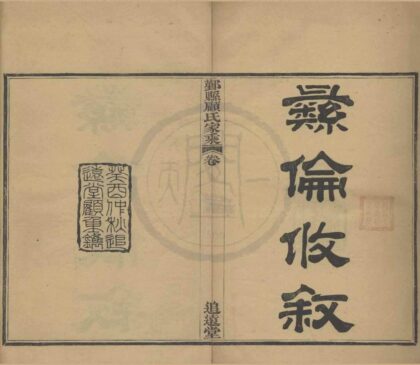 彝倫攸叙
鄞縣顧氏家乘 卷
追遠堂
癸酉仲秋追
遠堂顧鐫